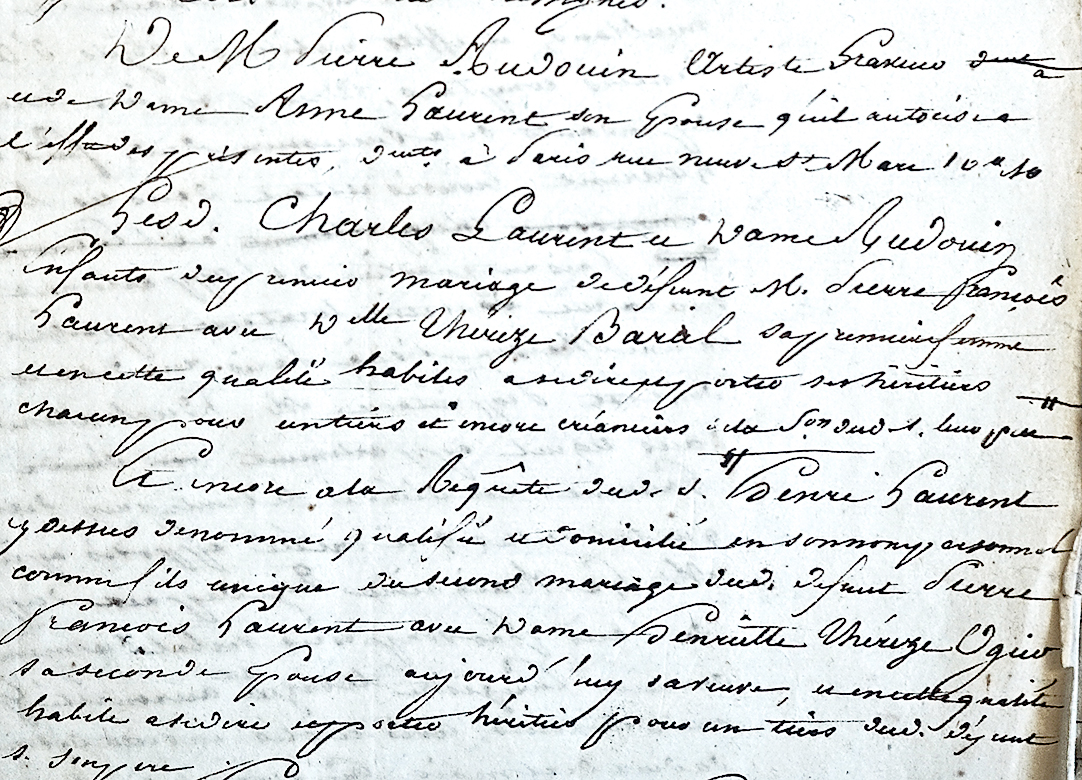 De M Pierre Audouin Artiste Graveur demt à
et de Dame Anne Laurent son Epouse qu'il autorise a
l'effet des présentes, demts à Paris rue neuve St Marc no 10
Lesd. Charles Laurent et Dame Audouin
Enfants du premier mariage de défunt M. Pierre François
Laurent avec Delle Thérèze Baral sa premiere femme
et en cette qualité habiles a se dire et porter ses héritiers
chacun pour un tiers et encore créanciers de la Son dud. s. leur pere
Et encore a la Requête dud. s. Henri Laurent
cy dessus denommé qualifié et domicilié en son nom personnel
comme fils unique du second mariage dud. defunt Pierre
François Laurent avec Dame Henriette Thérèze Ogier
sa seconde Epouse aujourd'huy sa veuve, et en cette qualité
habile a se dire et porter héritier pour un tiers dud. défunt
s. son pere